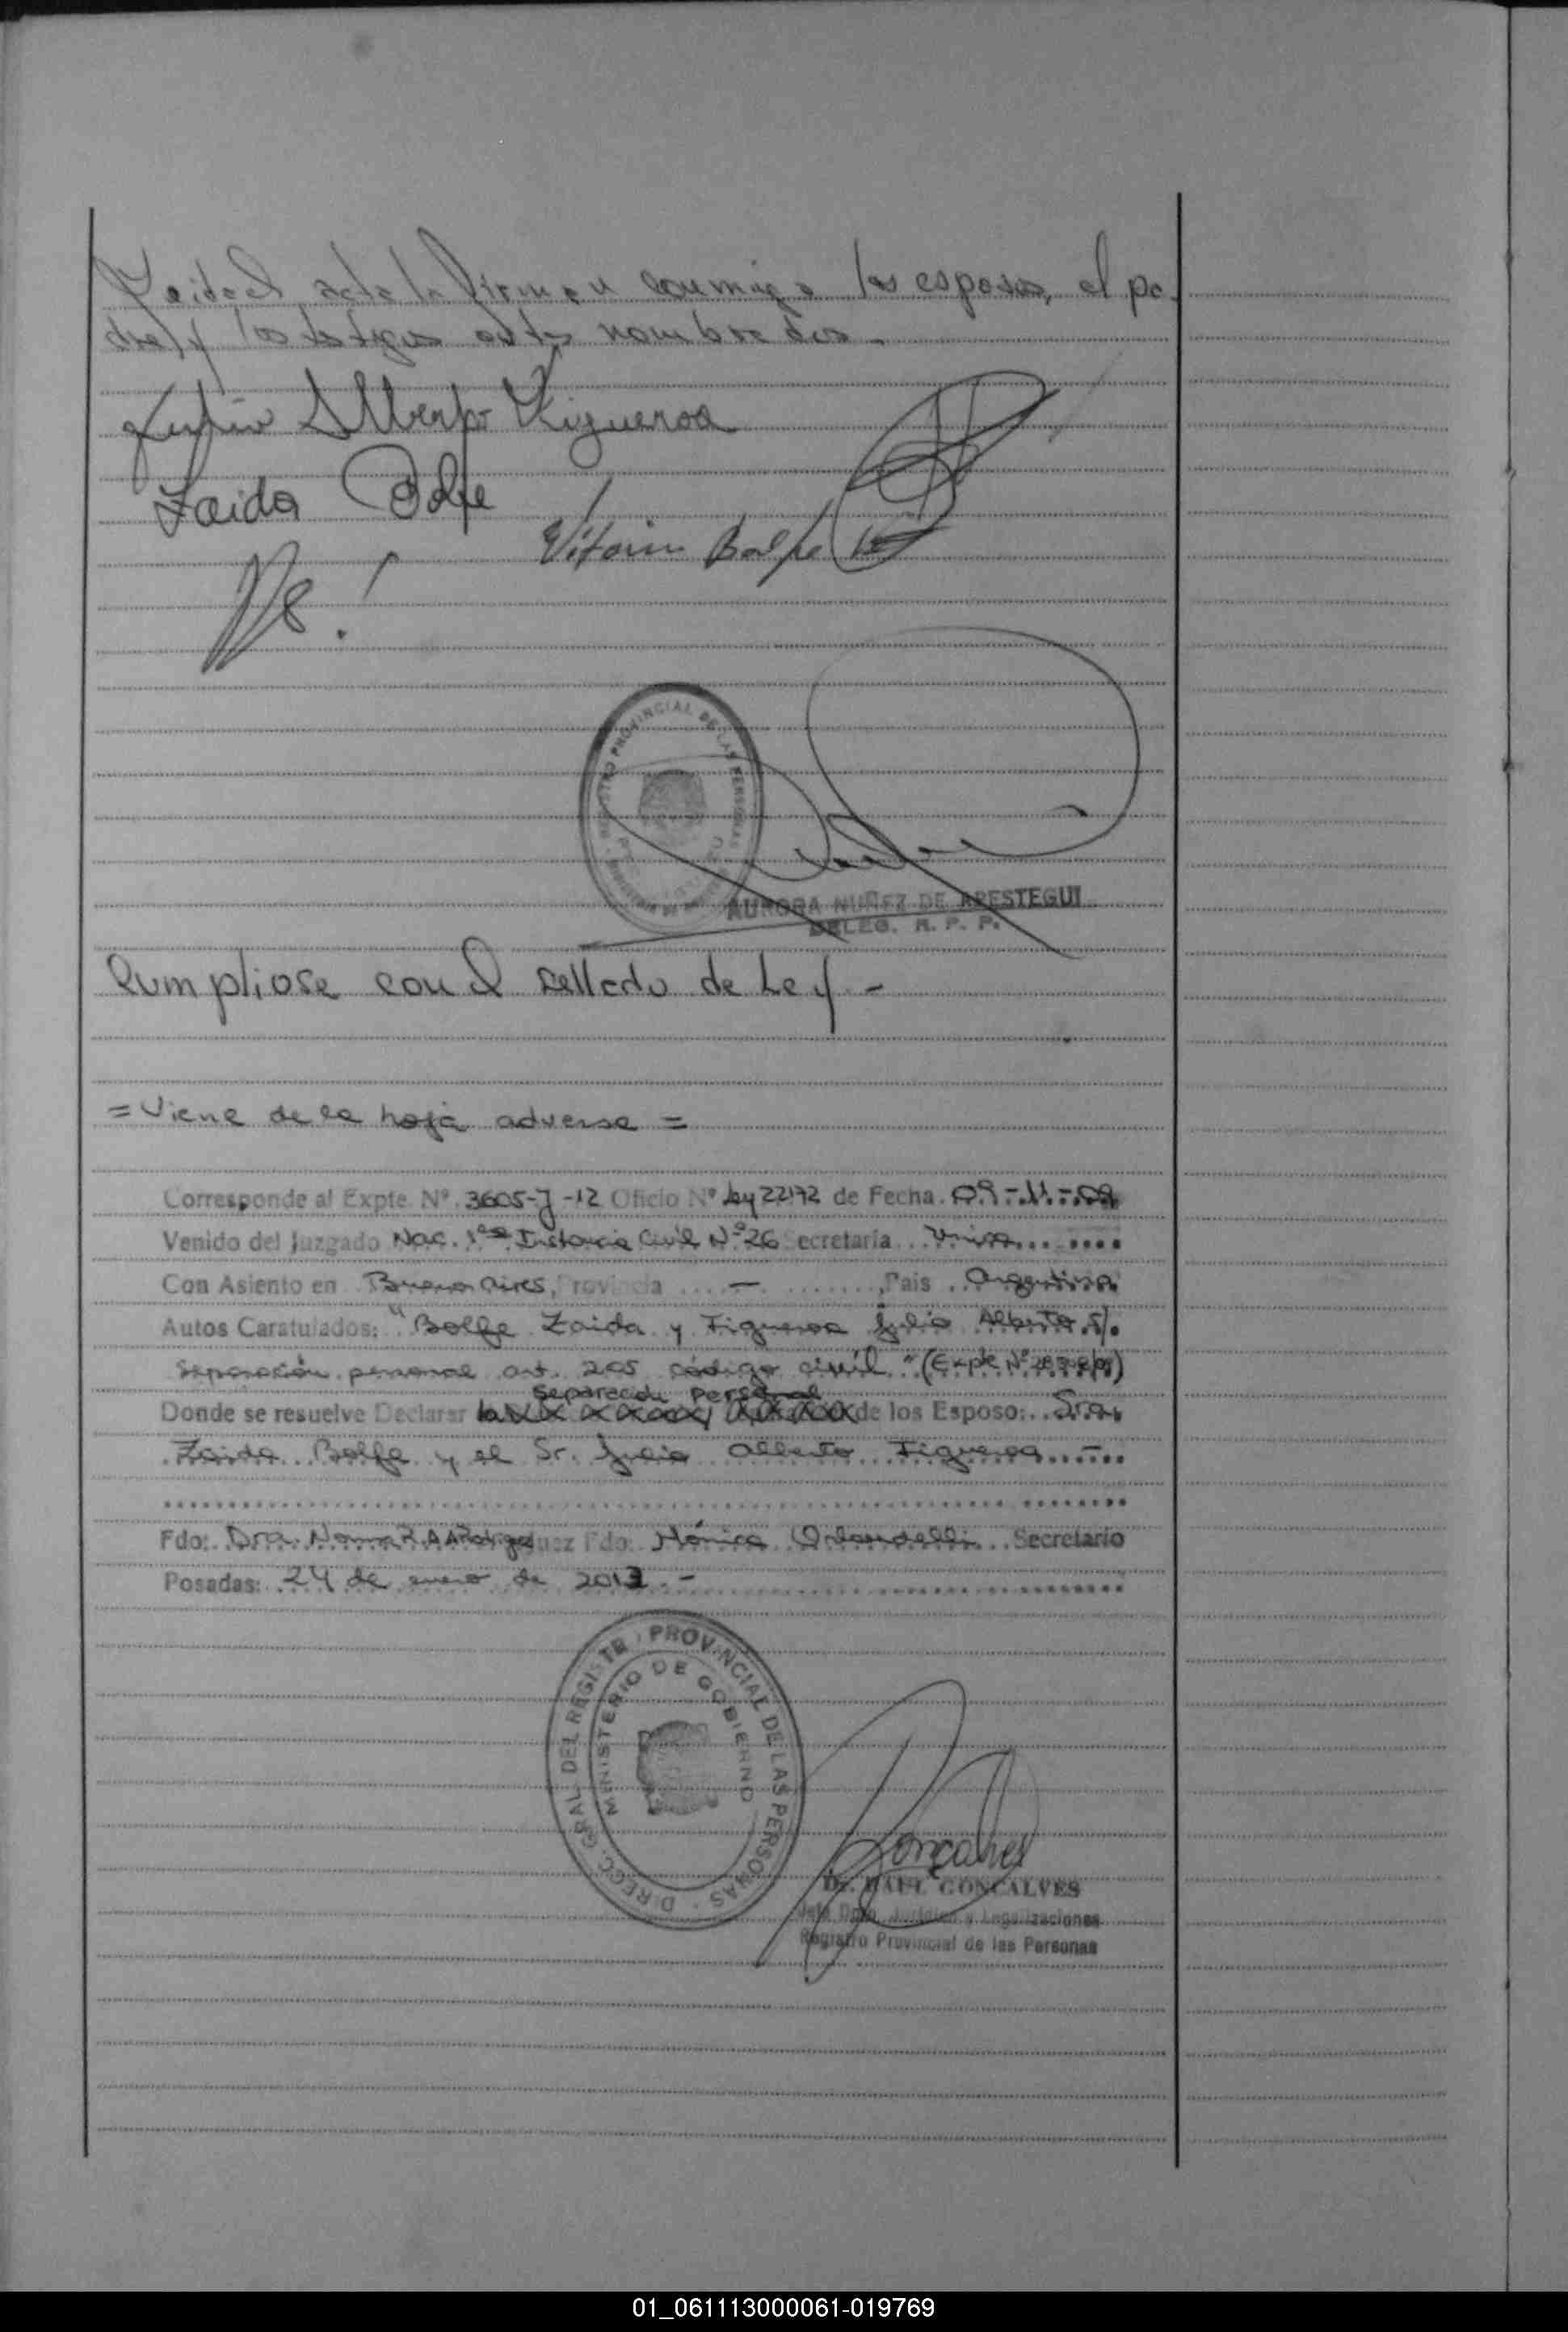 Leída el acta la firman conmigo los esposos, el pa-
dre y los testigos antes nombrados.-
Julio Alberto Figueroa
Zaida Bolfe
Bolfe
REGISTRO PROVINCIAL DE LAS PERSONAS
AURORA NUÑEZ DE APESTEGUI
DELEG. R. P. P.
Cumpliose con el sellado de Ley -
= Viene de la hoja adversa =
Corresponde al Expte. Nº 3605-J-12 Oficio Nº Ley 22172 de Fecha 09-11-09
Venido del Juzgado Nac. 1era Instancia Civil Nº 26 Secretaria Unica
Con Asiento en Buenos Aires, Provincia - , Pais Argentina
Autos Caratulados: "Bolfe Zaida y Figueroa Julio Alberto s/.
Separación personal art. 205 código civil" (Expte Nº
separación personal
Donde se resuelve Declarar la de los Esposo: Sra.
Zaida Bolfe y el Sr. Julio Alberto Figueroa -
Fdo: Dra. Norma R. A. Juez Fdo: Mónica Secretario
Posadas: 24 de enero de 2013.-
DIRECC. GRAL. DEL REGISTR PROVINCIAL DE LAS PERSONAS
MINISTERIO DE GOBIERNO
Gonçalves
Dr. RAUL GONCALVES
Jefe Dpto. Jurídico y Legalizaciones
Registro Provincial de las Personas
01_061113000061-019769